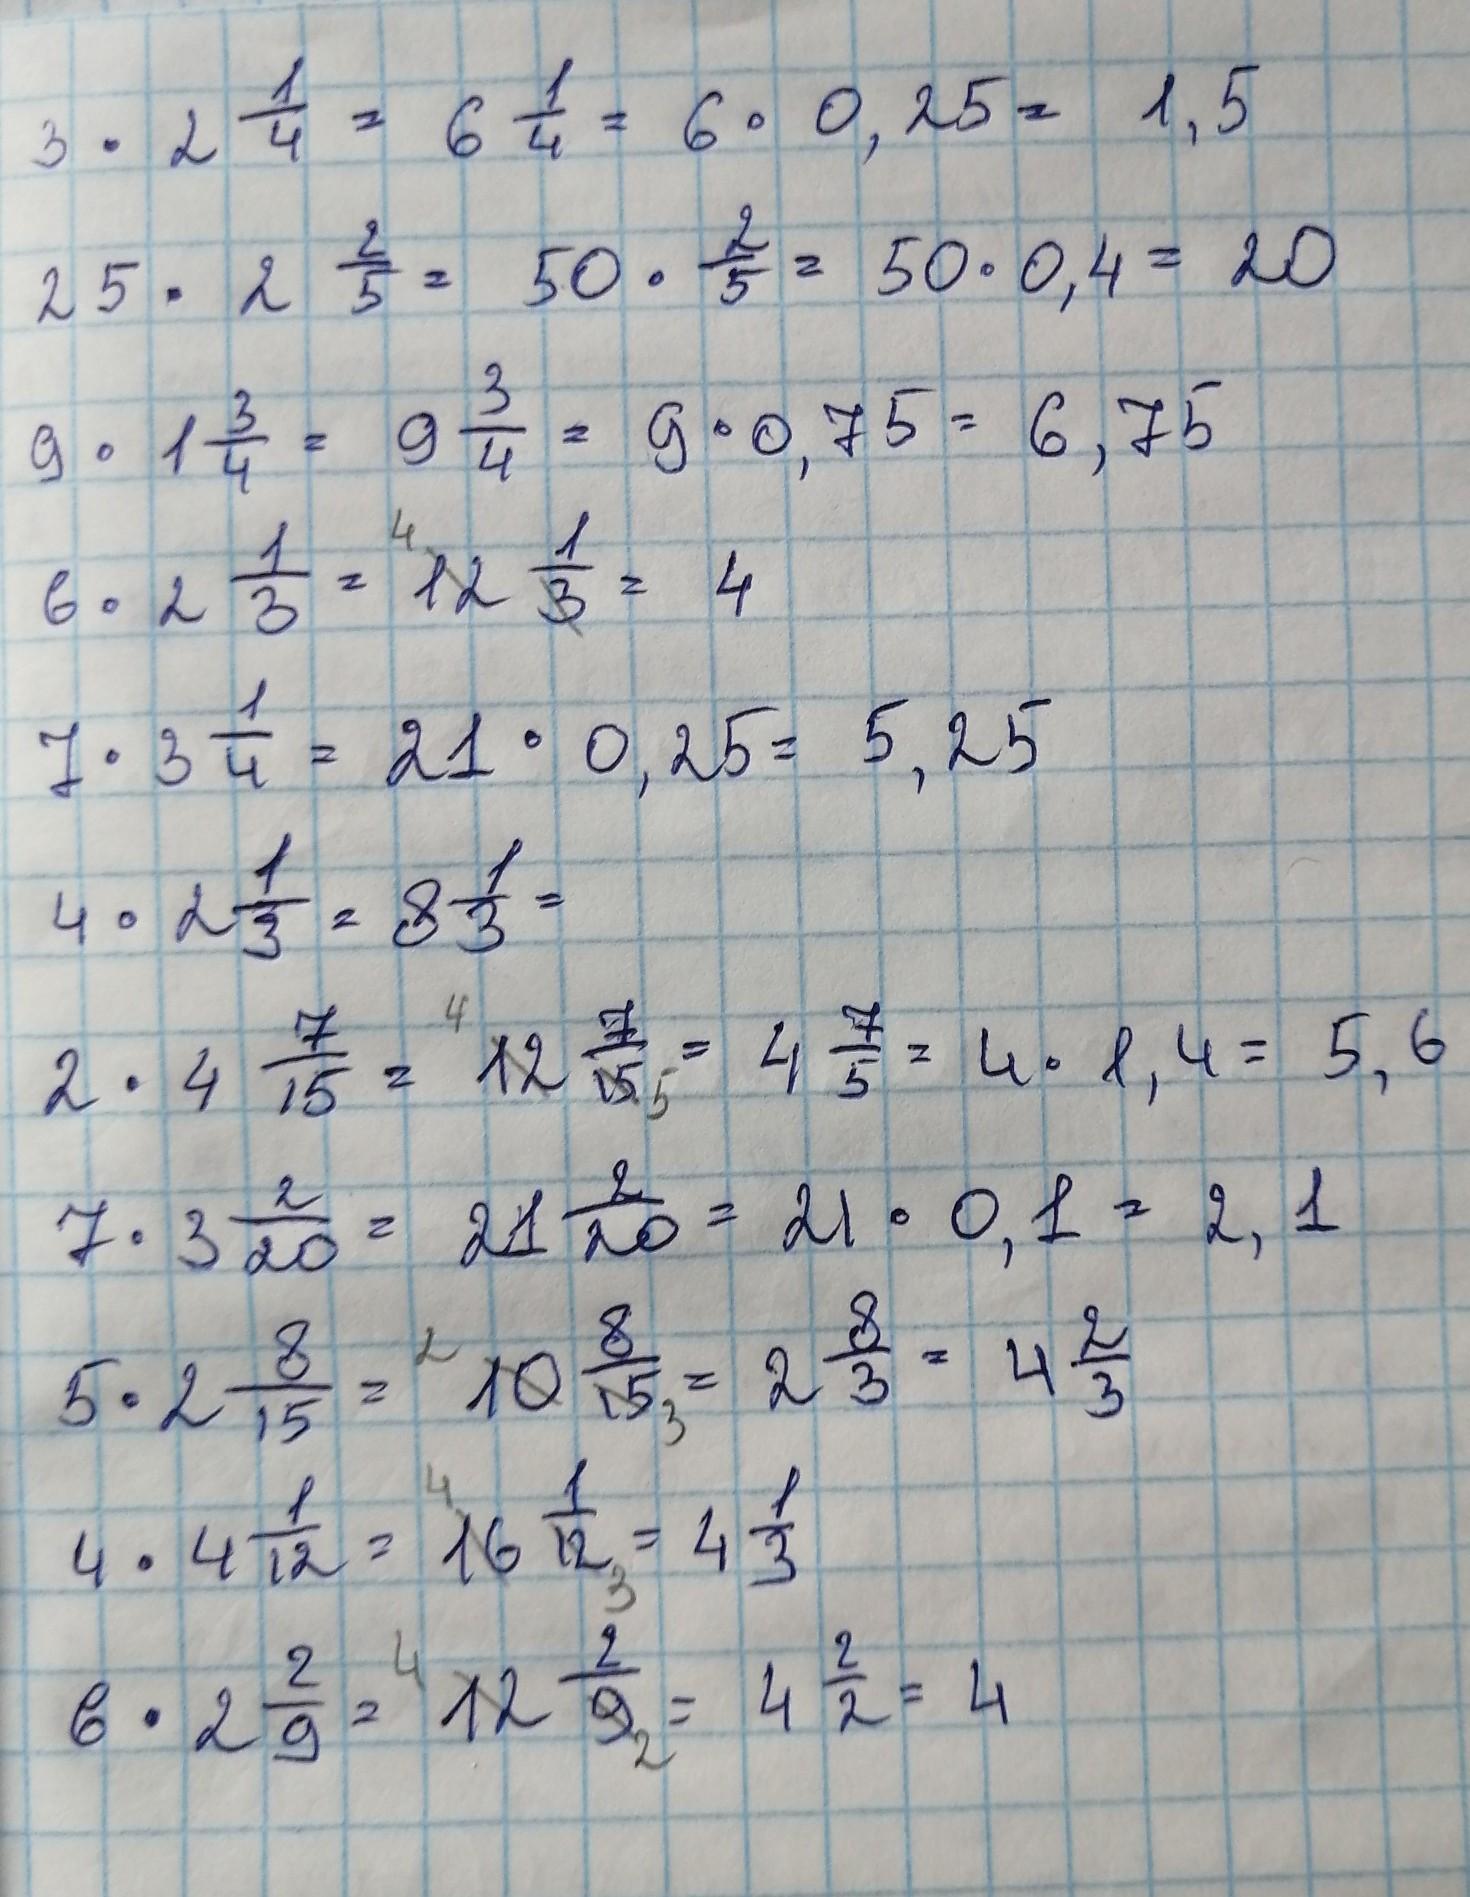 3 · 2 1/4 = 6 1/4 = 6 · 0,25 = 1,5
25 · 2 2/5 = 50 · 2/5 = 50 · 0,4 = 20
9 · 1 3/4 = 9 3/4 = 9 · 0,75 = 6,75
6 · 2 1/3 = 4 12 1/3 = 4
7 · 3 1/4 = 21 · 0,25 = 5,25
4 · 2 1/3 = 8 1/3 =
2 · 4 7/15 = 4 12 7/15 5 = 4 7/5 = 4 · 1,4 = 5,6
7 · 3 2/20 = 21 2/20 = 21 · 0,1 = 2,1
5 · 2 8/15 = 2 10 8/15 3 = 2 8/3 = 4 2/3
4 · 4 1/12 = 4 16 1/12 3 = 4 1/3
6 · 2 2/9 = 4 12 2/9 2 = 4 2/2 = 4